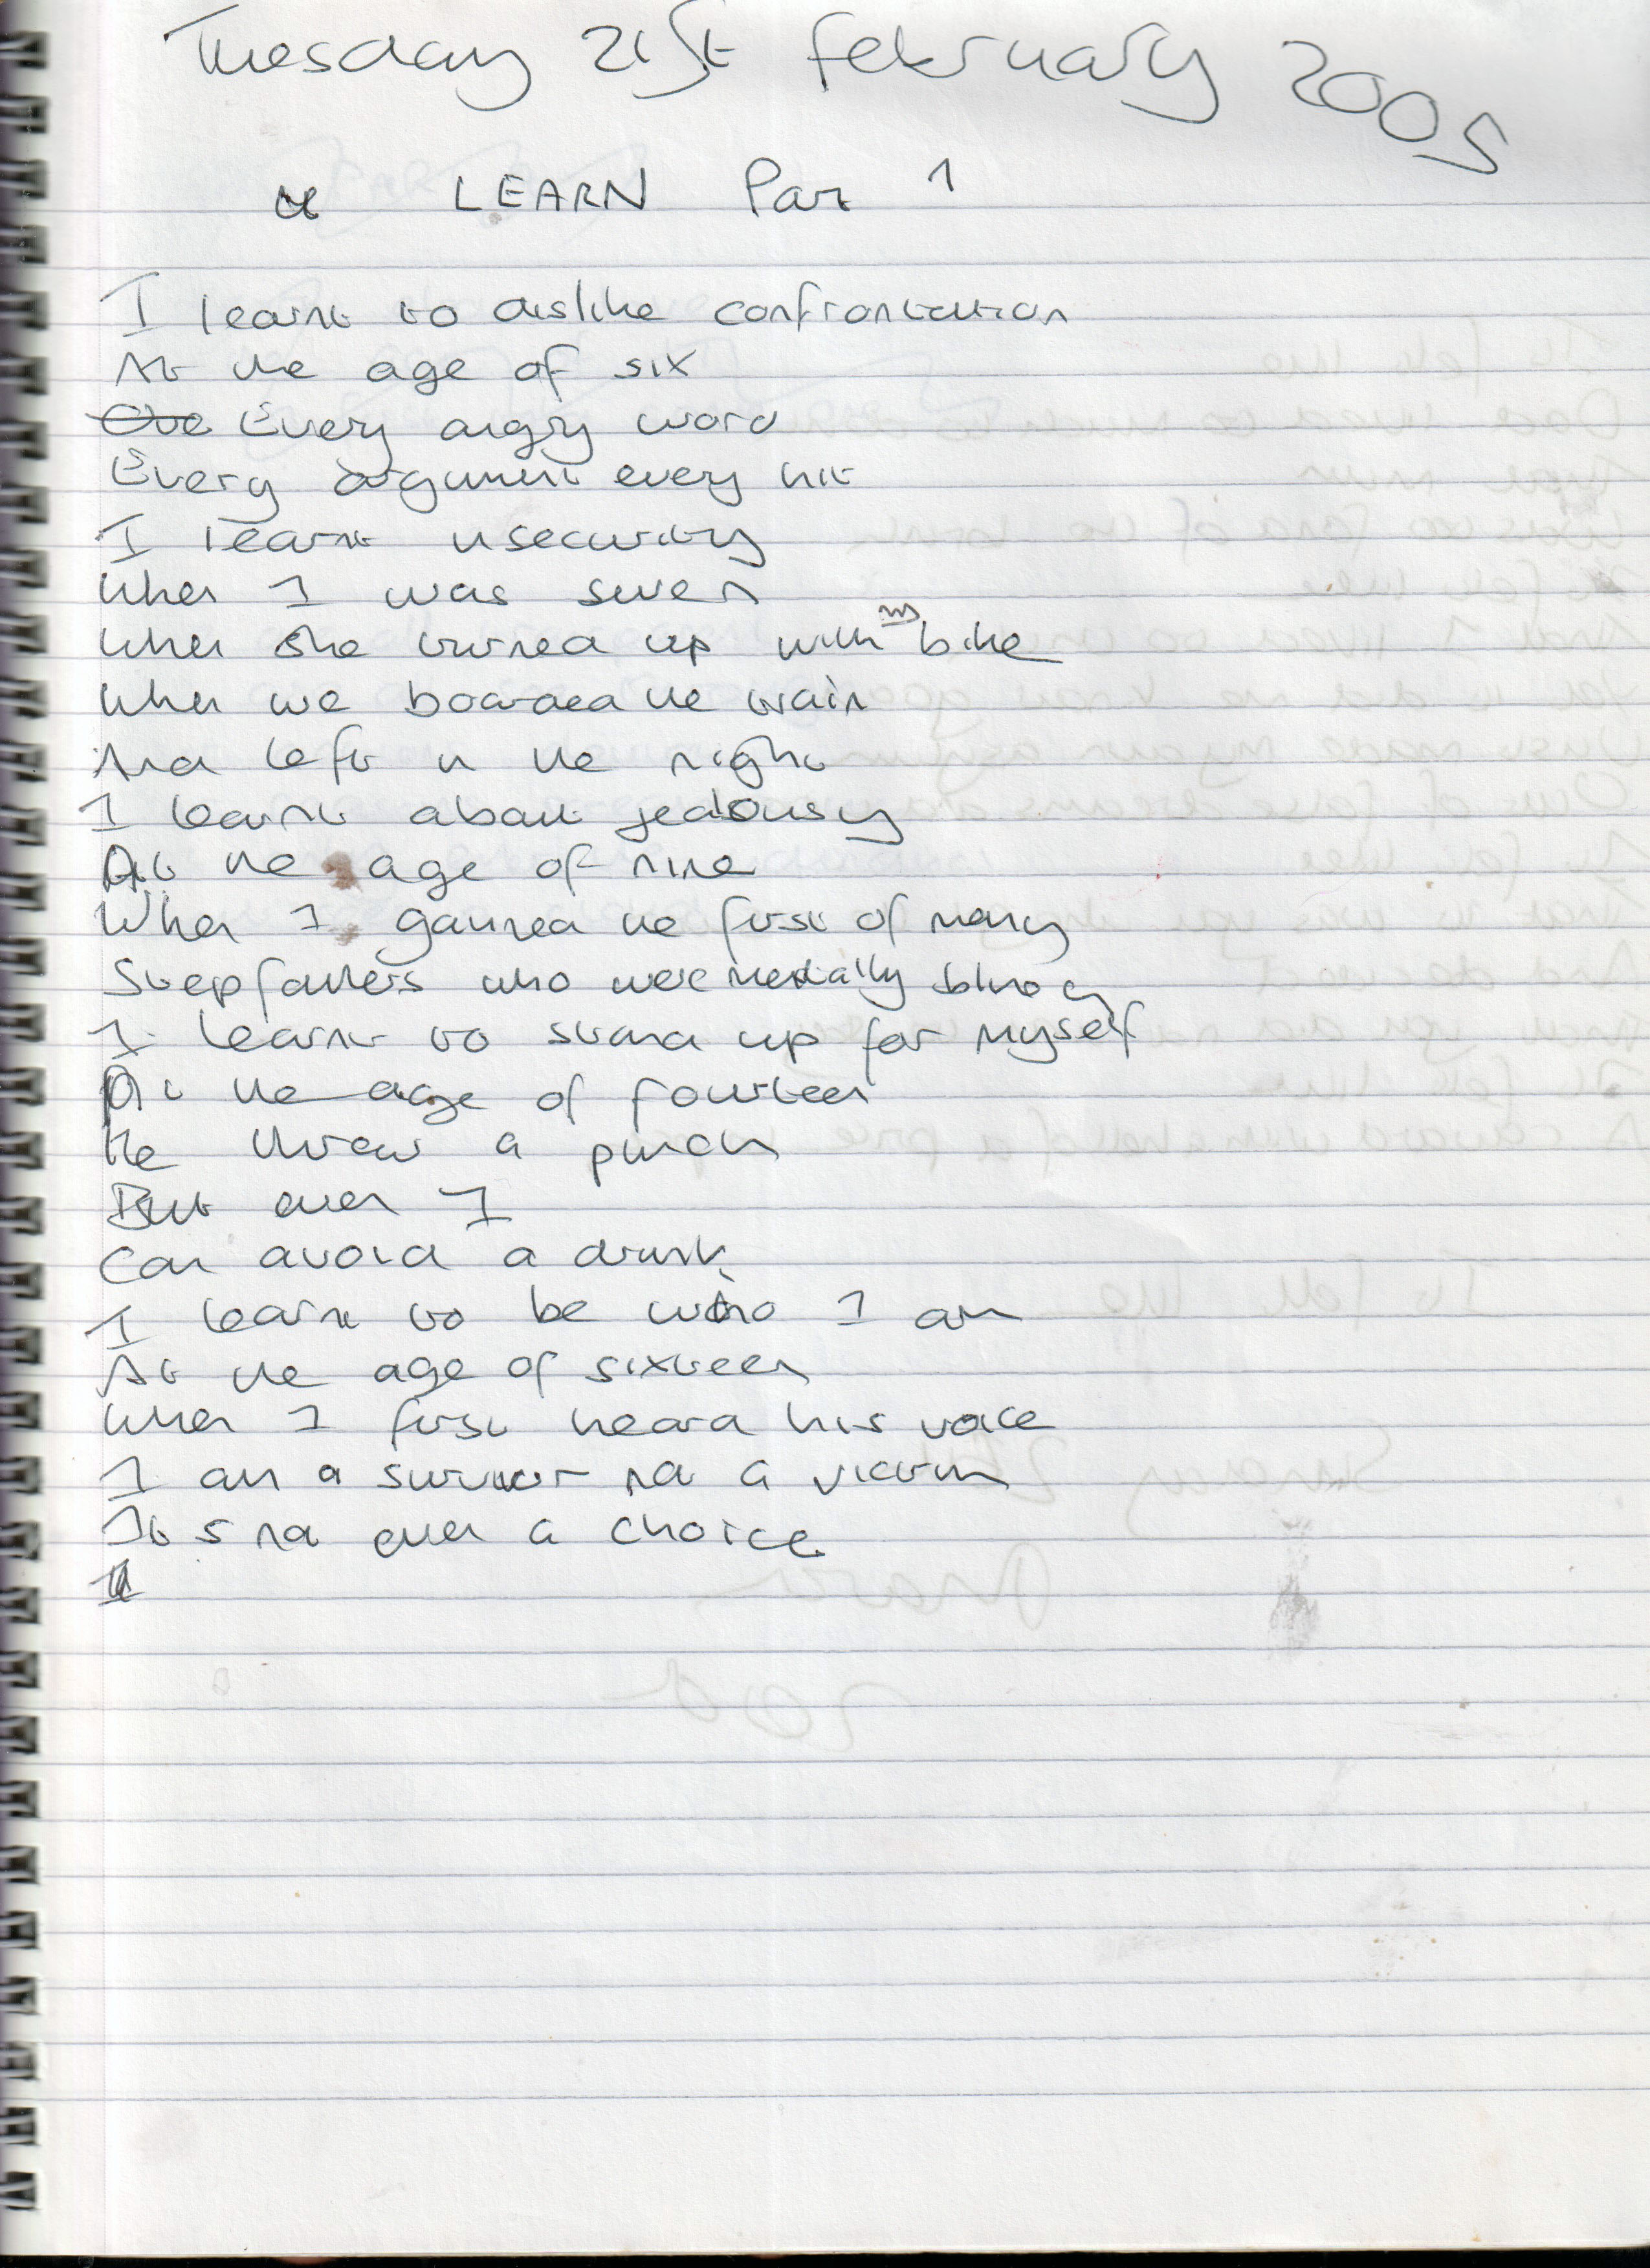 Tuesday 21st february 2005
LEARN Part 1
I learnt to dislike confrontation
At the age of six
Every angry word
Every argument every hit
I learnt insecurity
When I was seven
When she turned up with my bike
When we boarded the train
And left in the night
I learnt about jealousy
At the age of nine
When I gained the first of many
Stepfathers who were mentally
I learnt to stand up for myself
At the age of fourteen
He threw a punch
But even I
Can avoid a drunk
I learnt to be who I am
At the age of sixteen
When I first heard his voice
I am a survivor not a victim
It s not even a choice